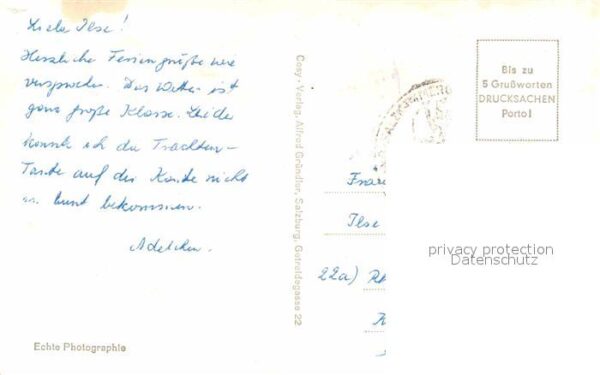 Liebe Ilse!
Herzliche Feriengrüße wie
versprochen. Das Wetter ist
ganz große Klasse. Leider
konnte ich die Trachten-
Tante auf der Karte nicht
in bunt bekommen.
Adelchen.
Echte Photographie
Cosy-Verlag, Alfred Gründler, Salzburg, Getreidegasse 22
Bis zu
5 Grußworten
DRUCKSACHEN
Porto!
Ilse
22a)
privacy protection
Datenschutz